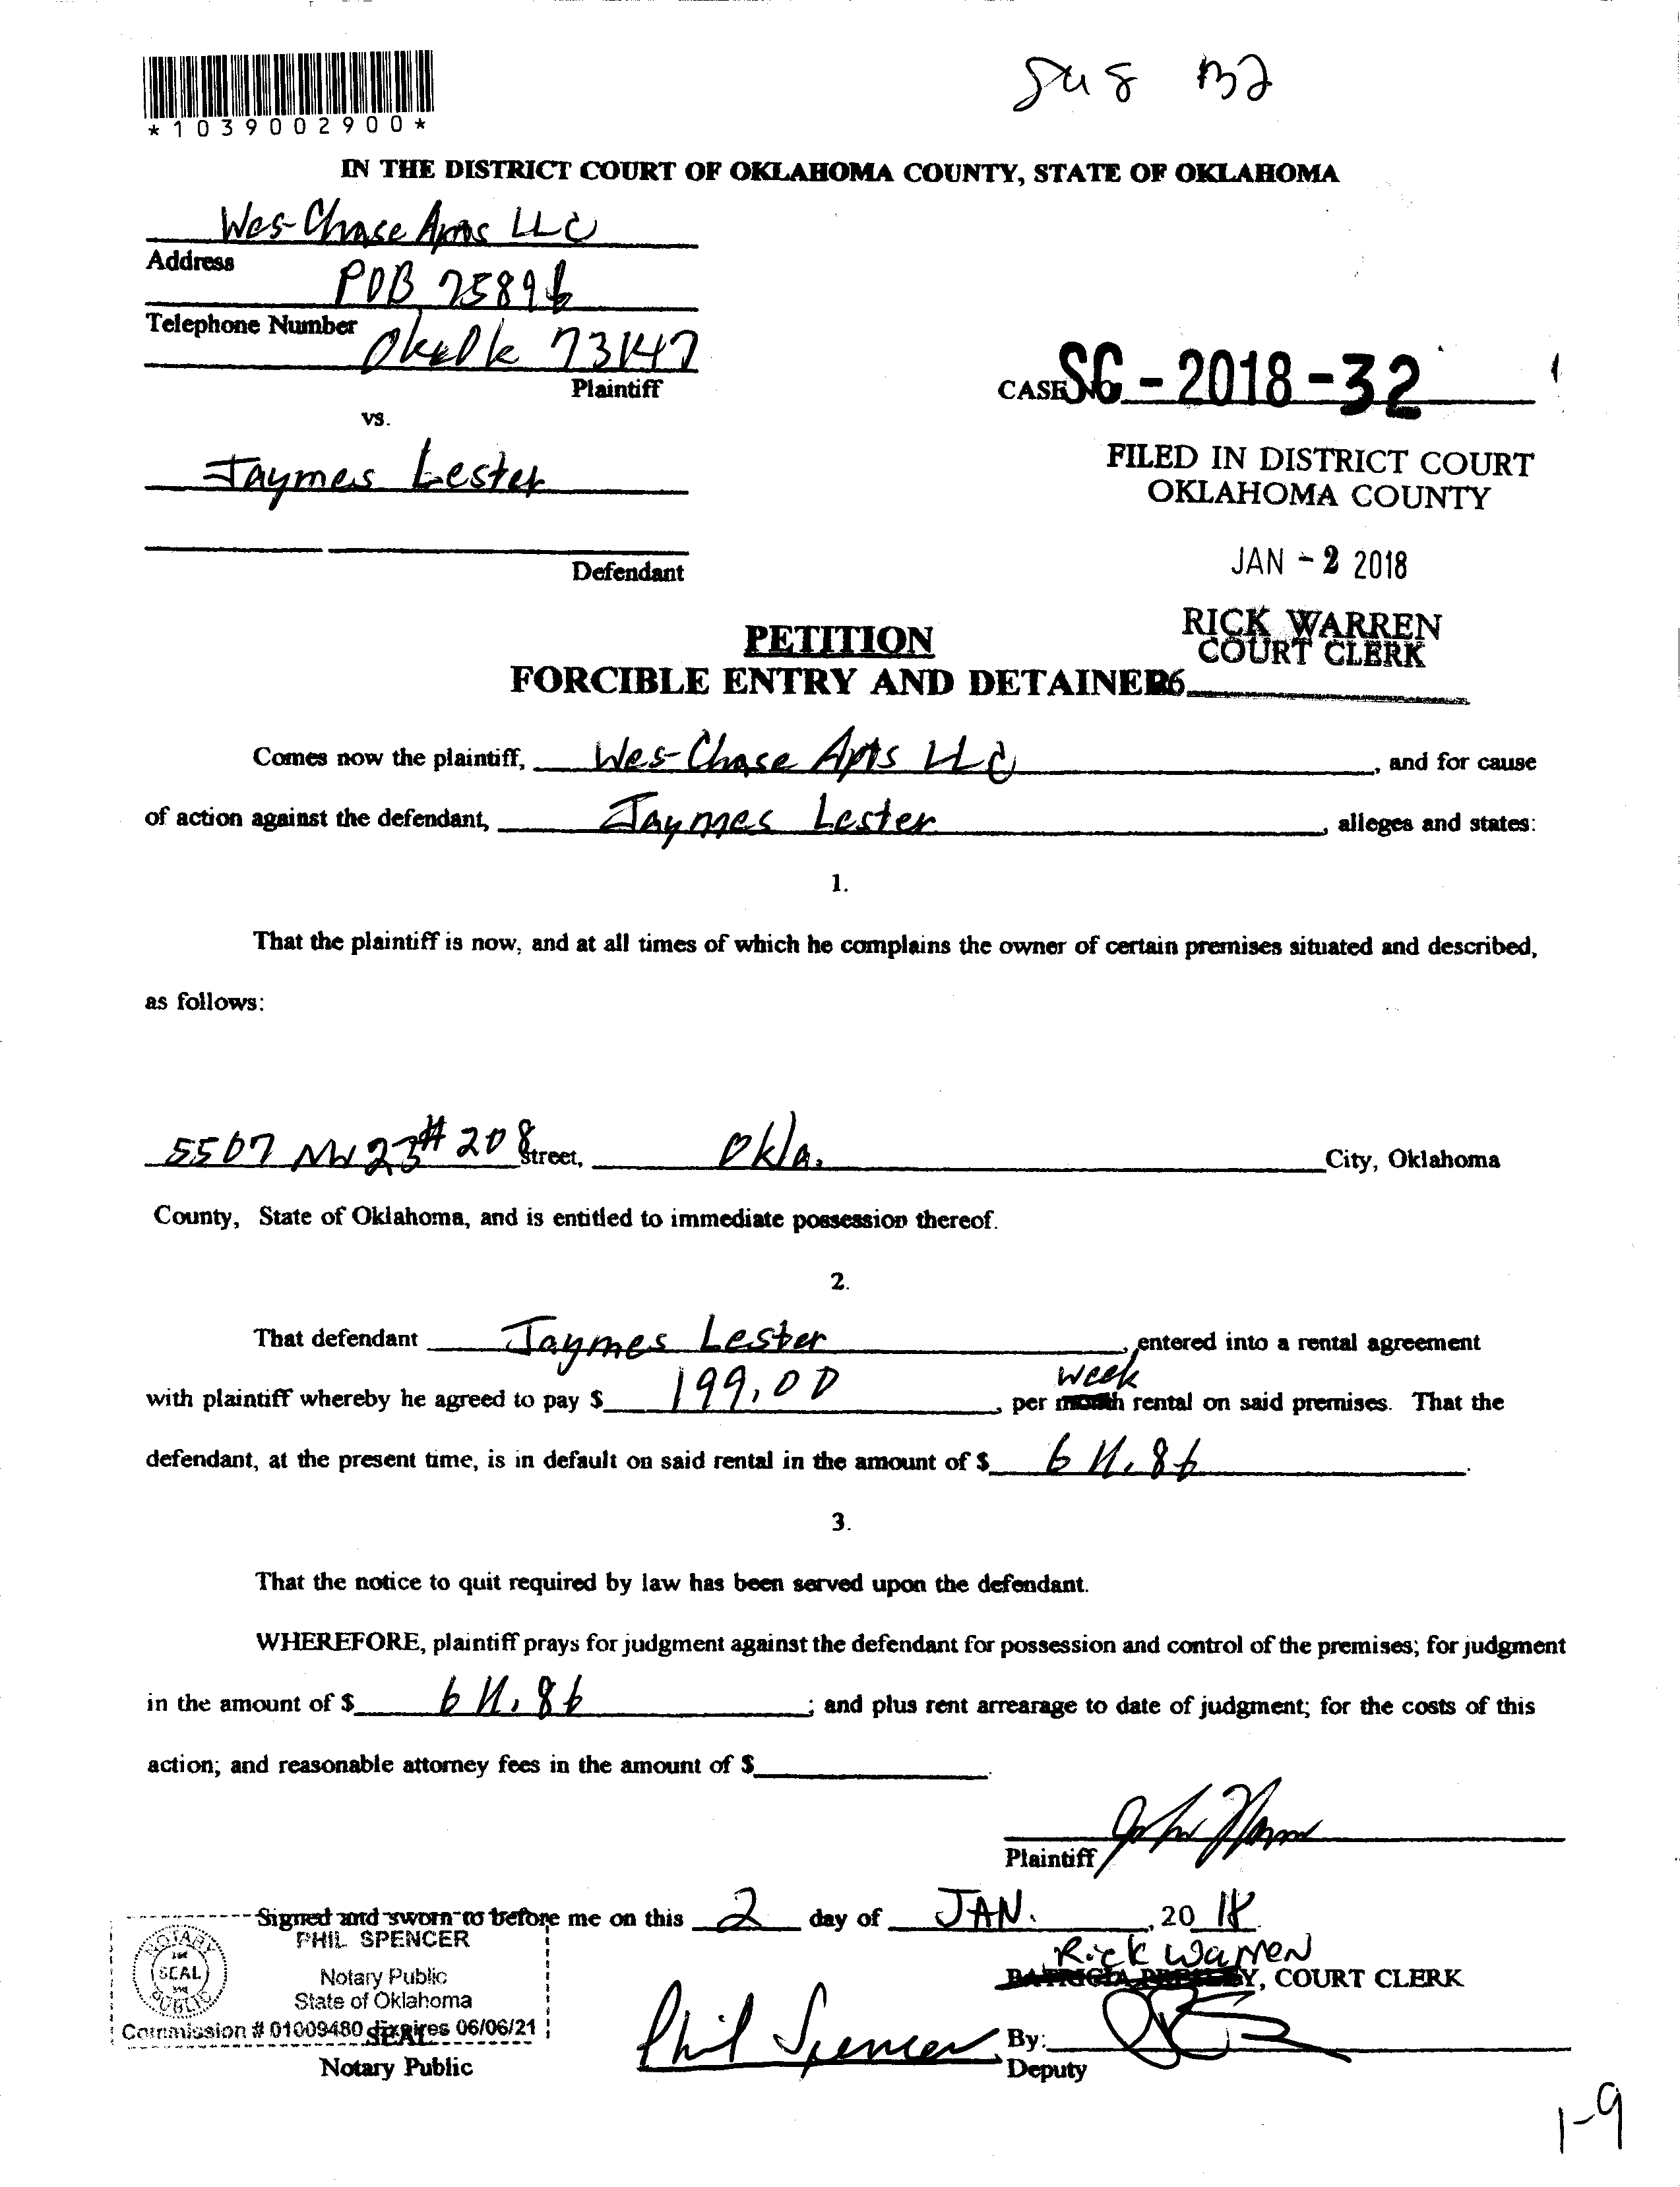 *1039002900*
IN THE DISTRICT COURT OF OKLAHOMA COUNTY, STATE OF OKLAHOMA
Wes-Chase Apts LLC
Address
POB 75896
Telephone Number
73147
Plaintiff
CASE NO. SC-2018-32
vs.
Jaymes Lester
FILED IN DISTRICT COURT
OKLAHOMA COUNTY
JAN -2 2018
Defendant
RICK WARREN
COURT CLERK
PETITION
FORCIBLE ENTRY AND DETAINER
Comes now the plaintiff, Wes-Chase Apts LLC, and for cause
of action against the defendant, Jaymes Lester, alleges and states:
1.
That the plaintiff is now, and at all times of which he complains the owner of certain premises situated and described,
as follows:
5507 NW 23 #208 Street, Okla. City, Oklahoma
County, State of Oklahoma, and is entitled to immediate possession thereof.
2.
That defendant Jaymes Lester, entered into a rental agreement
week
with plaintiff whereby he agreed to pay $ 199.00, per month rental on said premises. That the
defendant, at the present time, is in default on said rental in the amount of $ 611.86.
3.
That the notice to quit required by law has been served upon the defendant.
WHEREFORE, plaintiff prays for judgment against the defendant for possession and control of the premises; for judgment
in the amount of $ 611.86; and plus rent arrearage to date of judgment; for the costs of this
action; and reasonable attorney fees in the amount of $.
Plaintiff
Signed and sworn to before me on this 2 day of JAN., 2018
PHIL SPENCER
Rick Warren
NOTARY PUBLIC SEAL
Notary Public
PATRICIA PRESLEY, COURT CLERK
State of Oklahoma
Commission # 01009480 Expires 06/06/21
SEAL
Phil Spencer
By:
Notary Public
Deputy
1-9